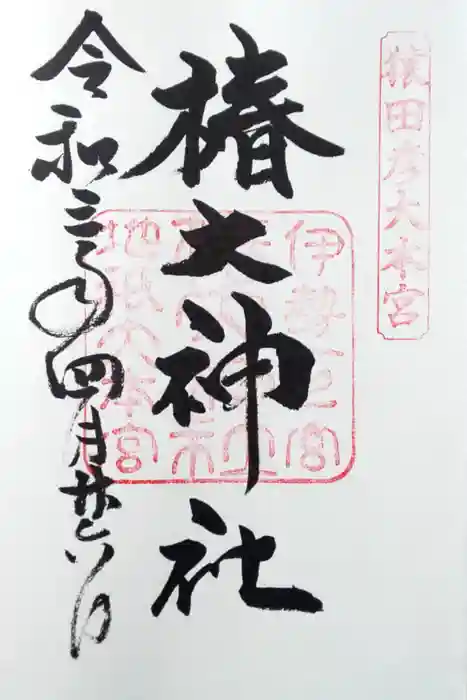 猿田彦大本宮
椿大神社
伊勢一之宮
地祇大本宮
令和三年四月廿六日